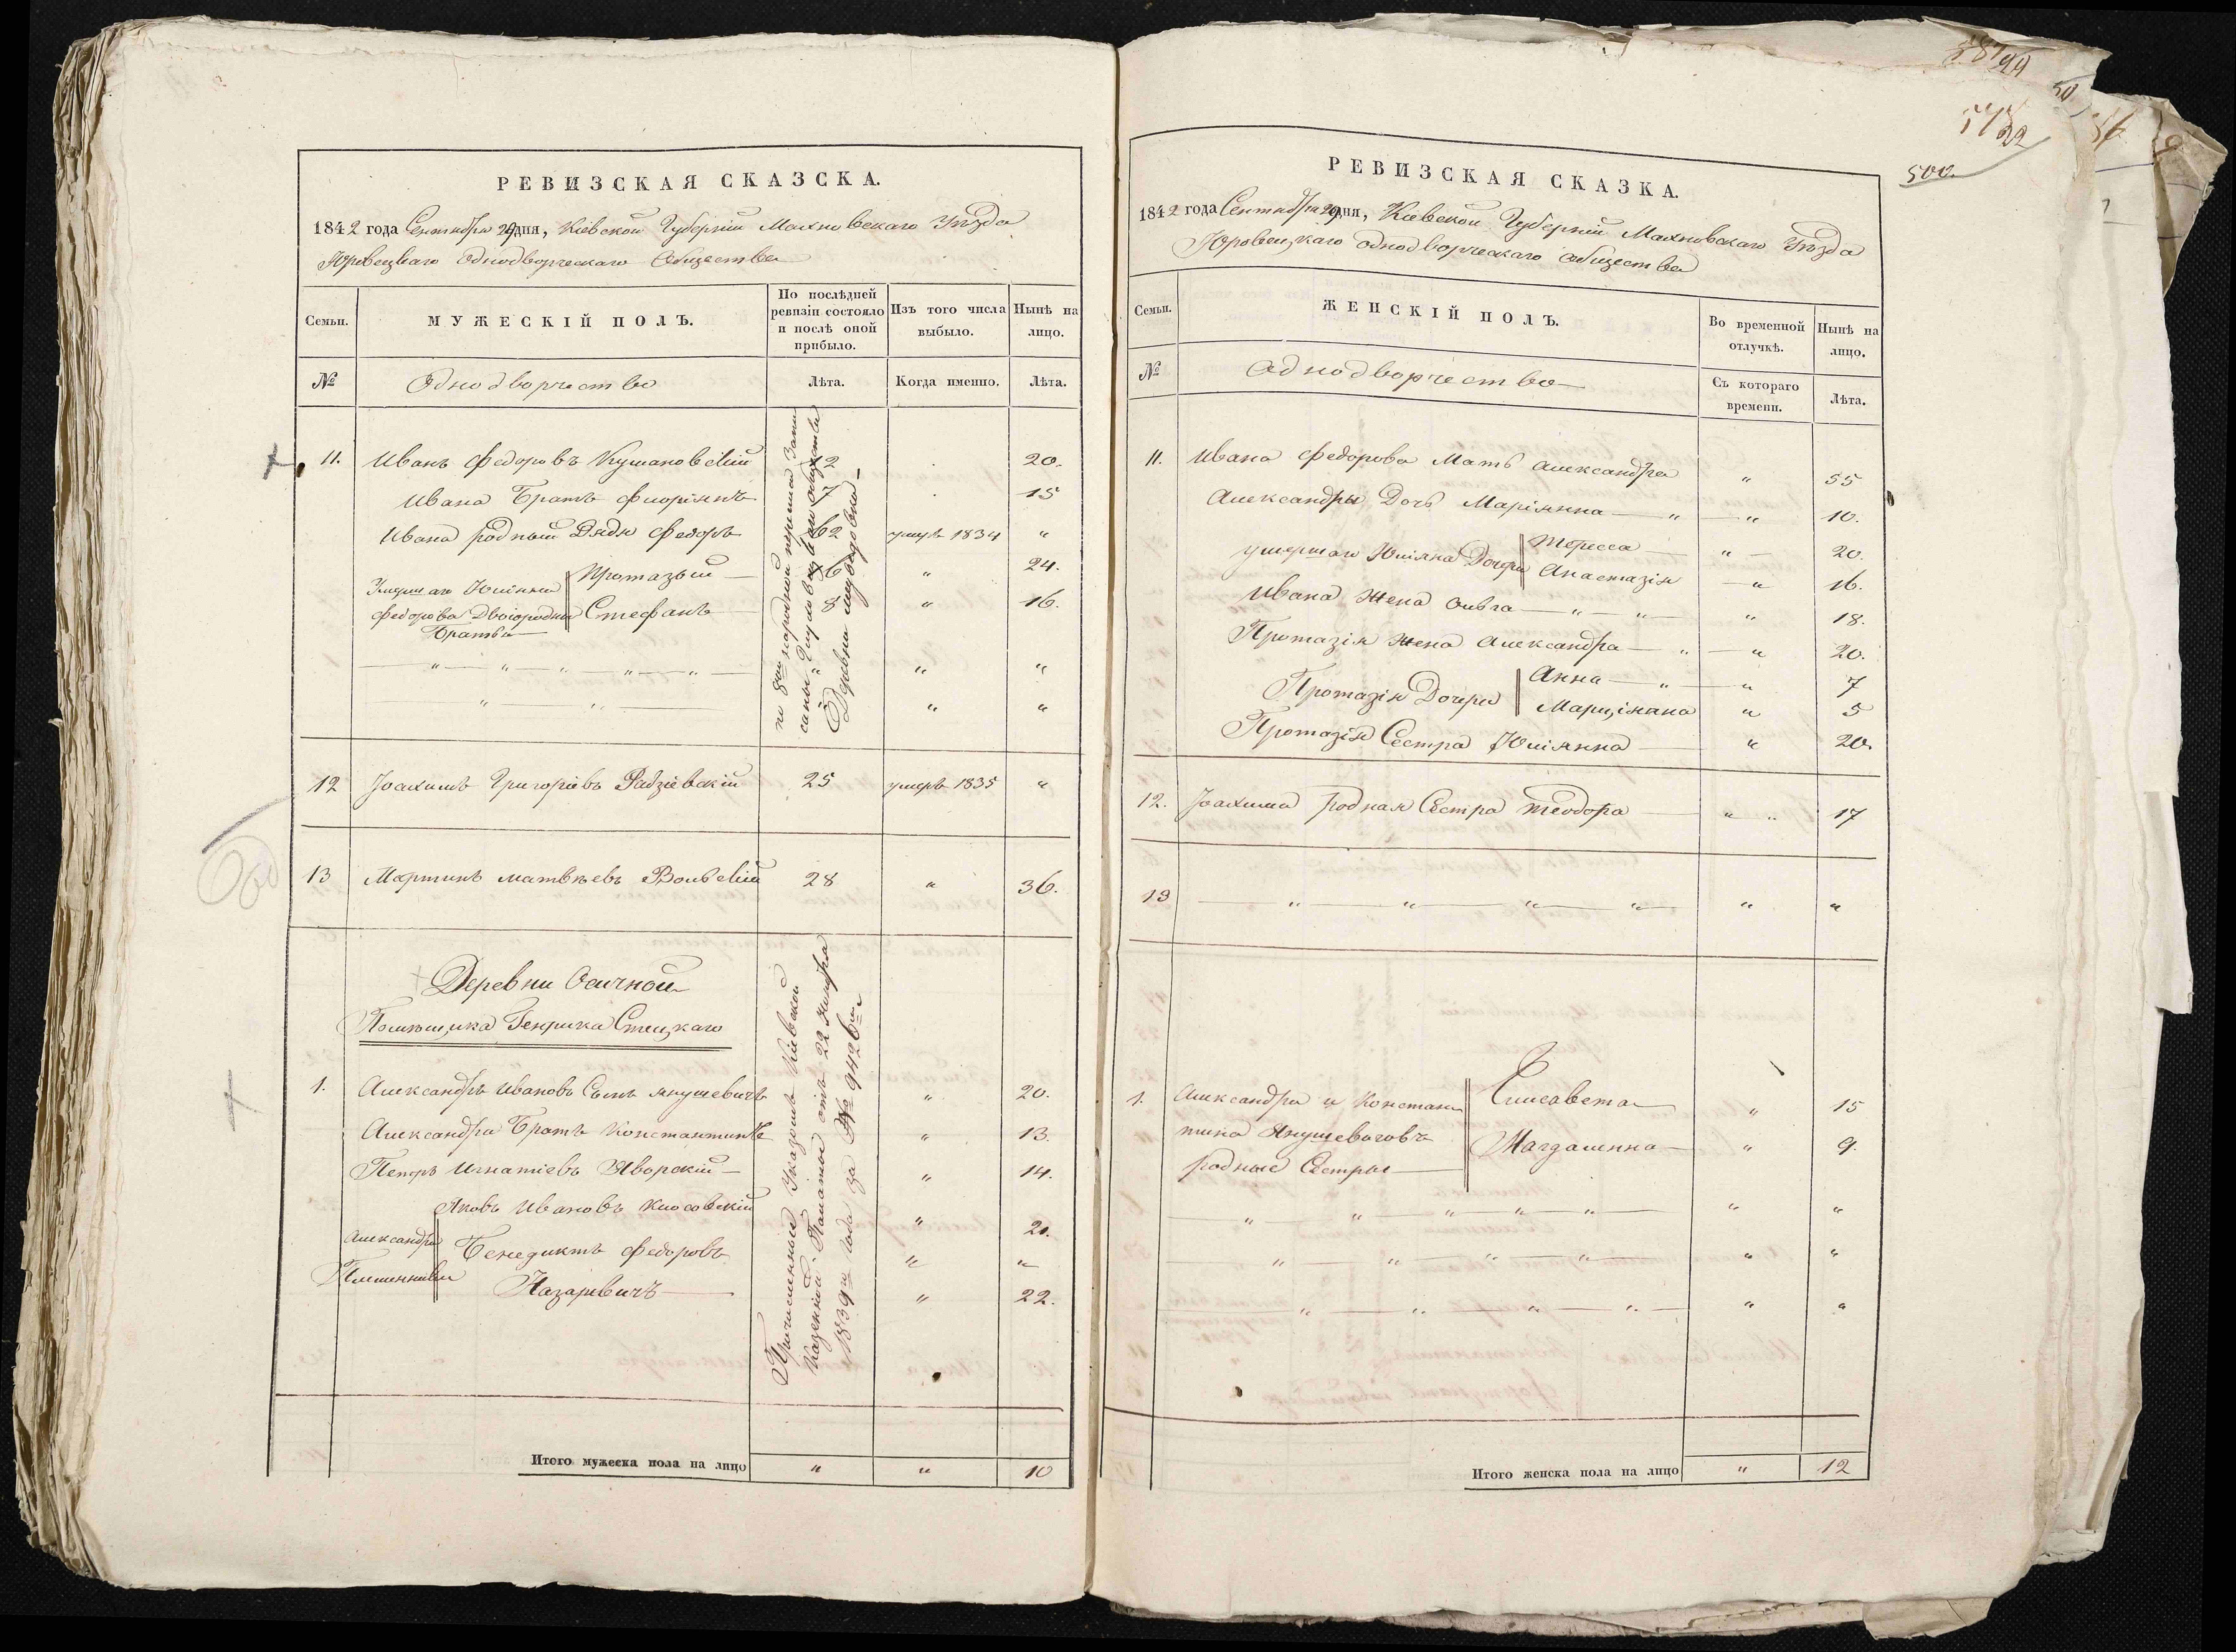 РЕВИЗСКАЯ СКАЗСКА.
1842 года Сентября 29 дня, Кіевской Губерніи Махновскаго Уѣзда
Юровецкаго Однодворческаго Общества
Семьи.
МУЖЕСКІЙ ПОЛЪ.
По послѣдней ревизіи состояло и послѣ оной прибыло.
Изъ того числа выбыло.
Нынѣ на лицо.
№
Однодворчество
Лѣта.
Когда именно.
Лѣта.
11. Иванъ Федоровъ 12 20.
Ивана Братъ Флоріянъ 7 15
Ивана родный Дядя Федоръ 62 умеръ 1834 "
Умершаго Юліяна Федорова Двоюродни Братья
Протазый " 24.
Стефанъ 8 " 16.
" " " " " " "
" " " "
по 8й народной переписи Запи
саны
Деревни
12 Іоахимъ Григоріевъ Радзіевскій 25 умеръ 1835 "
13 Мартинъ Матвѣевъ Вольскій 28 " 36.
Деревни Осичной
Помѣщика Генрика Стецкаго
1. Александръ Ивановъ Сынъ Янушевичъ " 20.
Александра Братъ Константинъ " 13.
Петръ Игнатіевъ Яворскій " 14.
Яковъ Ивановъ " 21.
Александра Племенники
Бенедиктъ Федоровъ " "
Назаревичъ " 22.
Причисленный Указомъ Кіевской
Казенной Палаты отъ 22 Ноября
1839го года за № 9426м
Итого мужеска пола на лицо " " 10
500
РЕВИЗСКАЯ СКАЗКА.
1842 года Сентября 29 дня, Кіевской Губерніи Махновскаго Уѣзда
Юровецкаго однодворческаго общества
Семьи.
ЖЕНСКІЙ ПОЛЪ.
Во временной отлучкѣ.
Нынѣ на лицо.
№
Однодворчество
Съ котораго времени.
Лѣта.
11. Ивана Федорова Мать Александра " 55
Александры Дочь Маріянна " " 10.
умершаго Юліяна Дочери
Тересса " 20.
Анастазія " 16.
Ивана Жена Ольга " " " 18.
Протазія жена Александра " " 20.
Протазія Дочери
Анна " " 7
Марціянна " 5
Протазія Сестра Юліянна " 20.
12. Іоахима родная Сестра Теодора " " 17
13 " " " " " "
1. Александра и Констан
тина Янушевичовъ
родные Сестры
Елисавета " 15
Магдаленна " 9.
" " " " " " "
" " " " " "
" " " " " "
Итого женска пола на лицо " 12